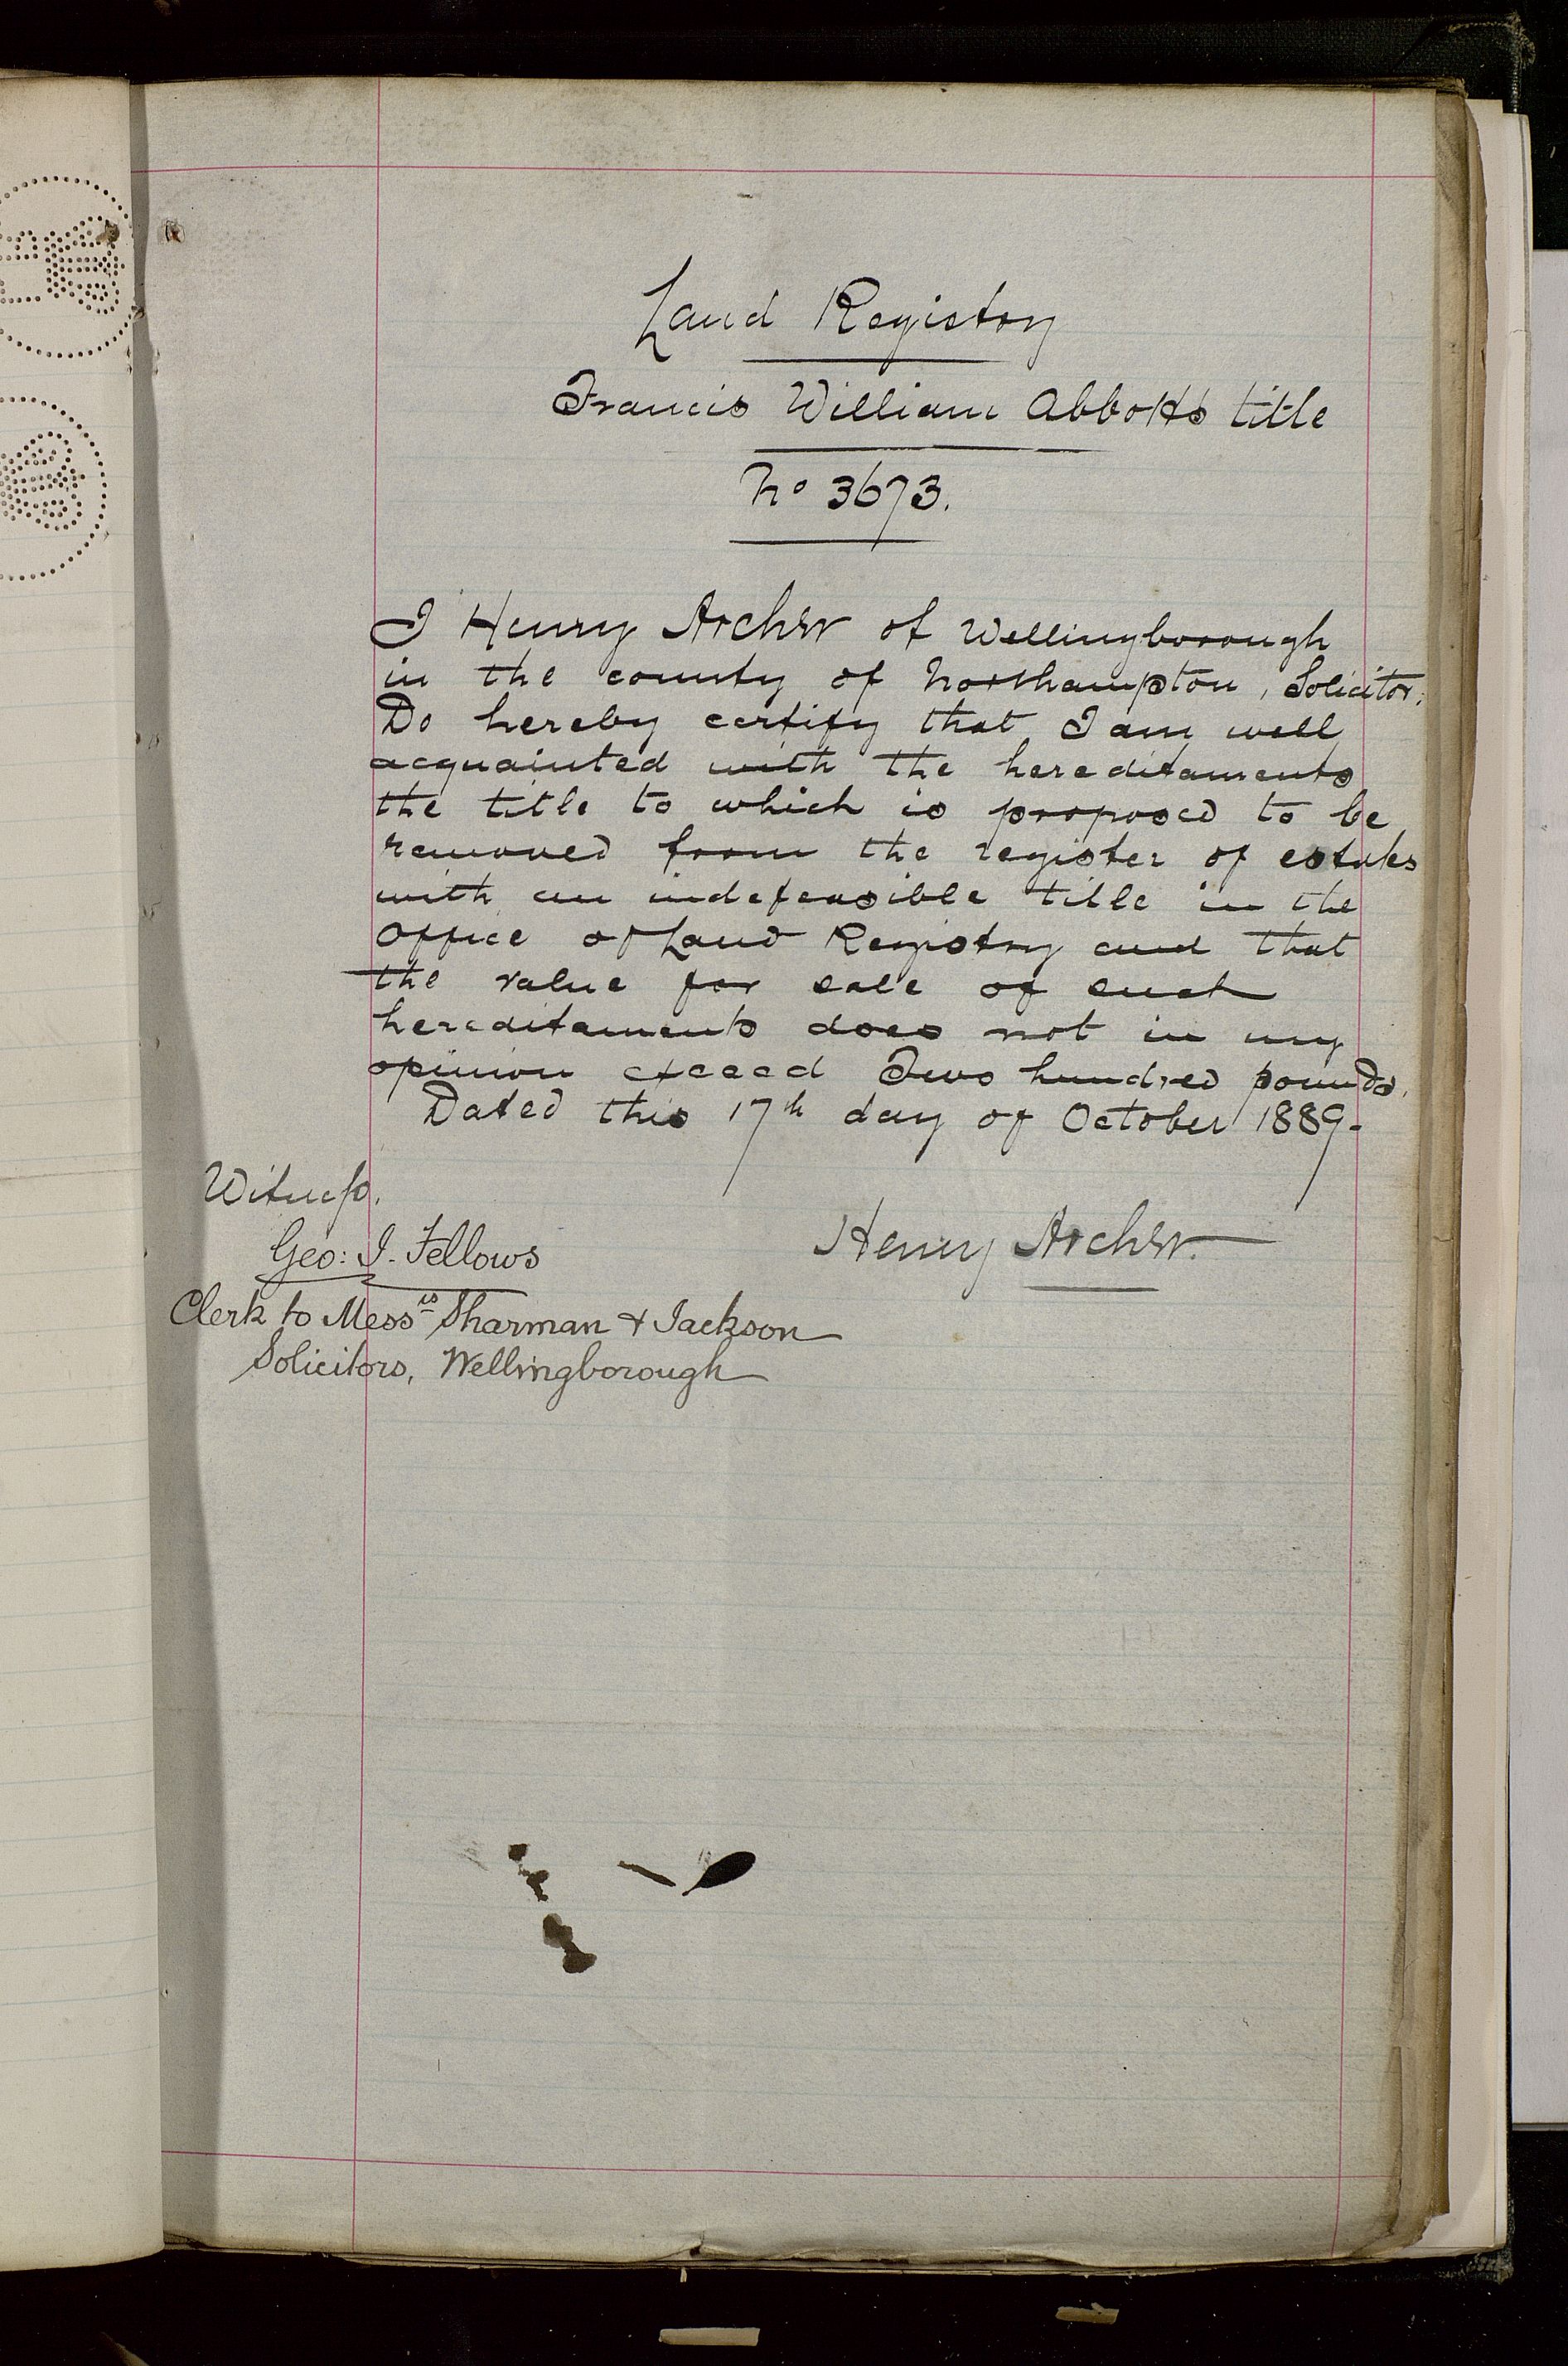 Land Registry
Francis William Abbotts title
No 3673.
I Henry Archer of Wellingborough
in the county of Northampton, Solicitor,
Do hereby certify that I am well
acquainted with the hereditaments
the title to which is proposed to be
removed from the register of estates
with an indefeasible title in the
Office of Land Registry and that
the value for sale of such
hereditaments does not in my
opinion exceed Two hundred pounds.
Dated this 17th day of October 1889-
Witness.
Henry Archer.
Geo: J. Fellows
Clerk to Messrs Sharman & Jackson
Solicitors, Wellingborough